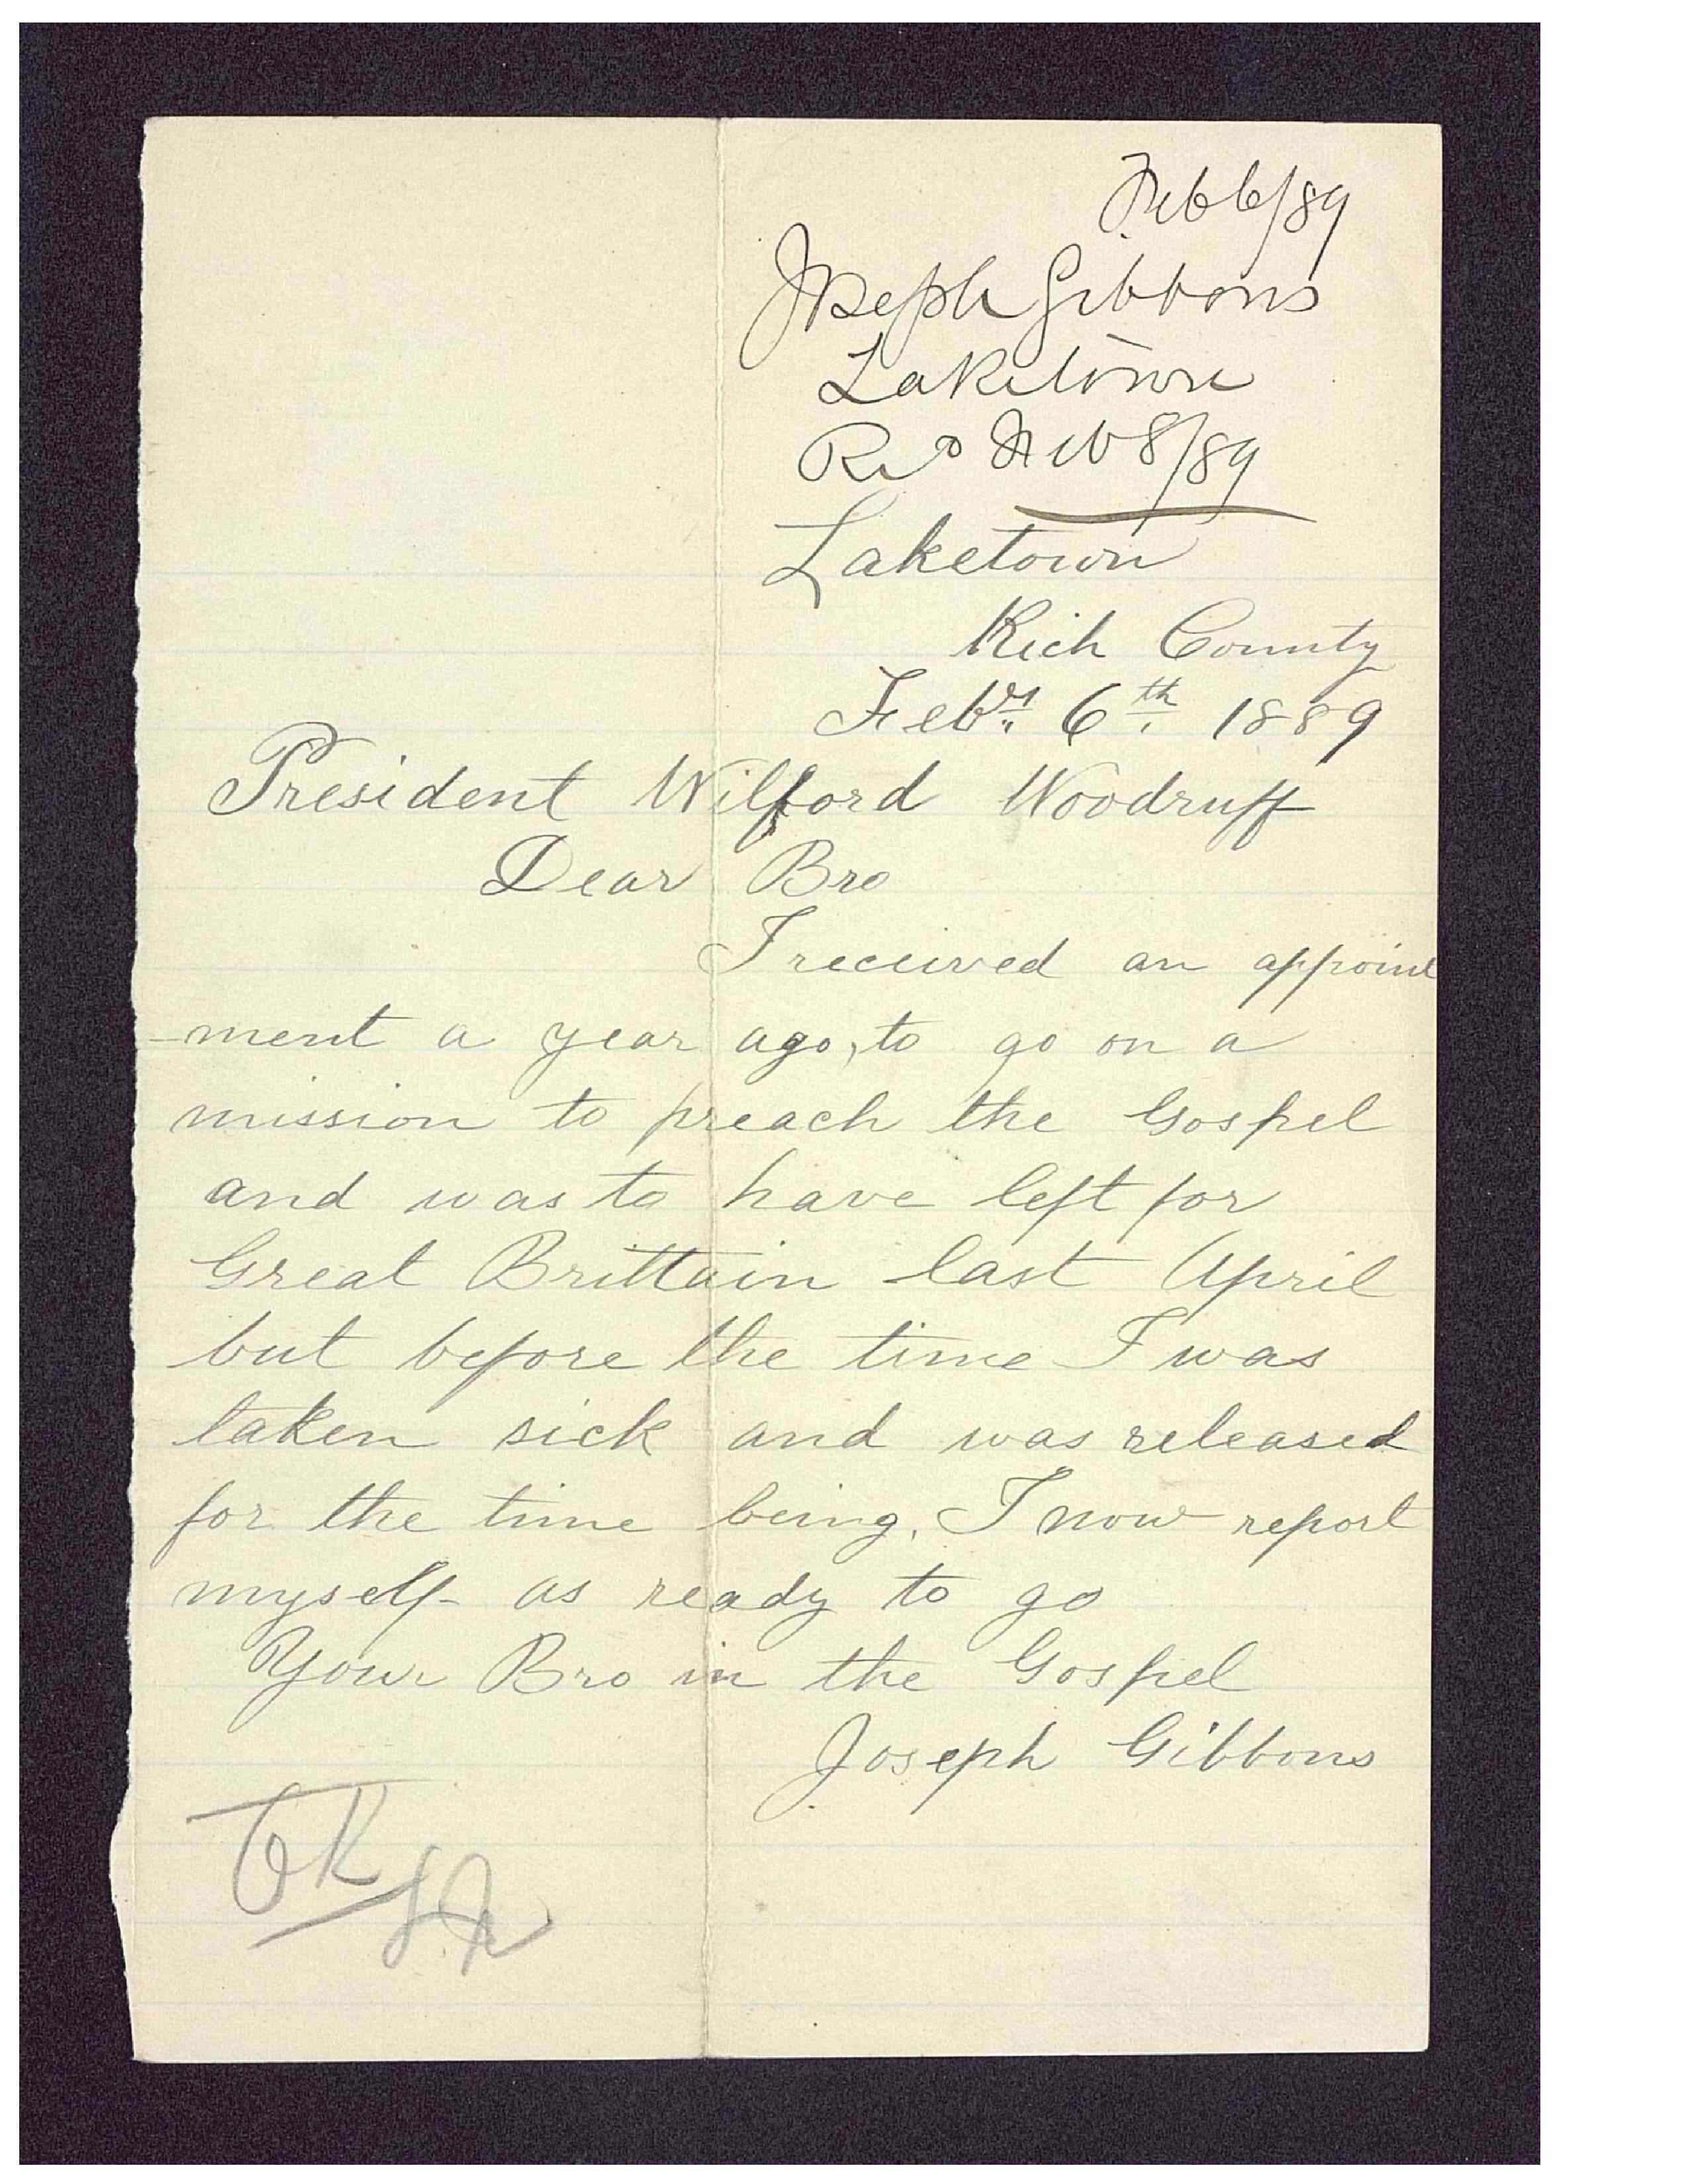 Feb 6/89
Joseph Gibbons
Laketown
Recd Feb 8/89
Laketown
Rich County
Febry 6th 1889
President Wilford Woodruff
Dear Bro
I received an appoint
-ment a year ago, to go on a
mission to preach the Gospel
and was to have left for
Great Brittain last April
but before the time I was
taken sick and was released
for the time being. I now report
myself as ready to go
Your Bro in the Gospel
Joseph Gibbons
OK